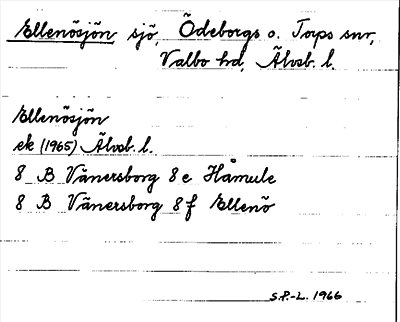 Ellenösjön sjö, Ödeborgs o. Torps snr,
Valbo hd, Älvsb. l.
Ellenösjön
ek (1965) Älvsb. l.
8 B Vänersborg 8 e Håmule
8 B Vänersborg 8 f Ellenö
S.P.-L. 1966